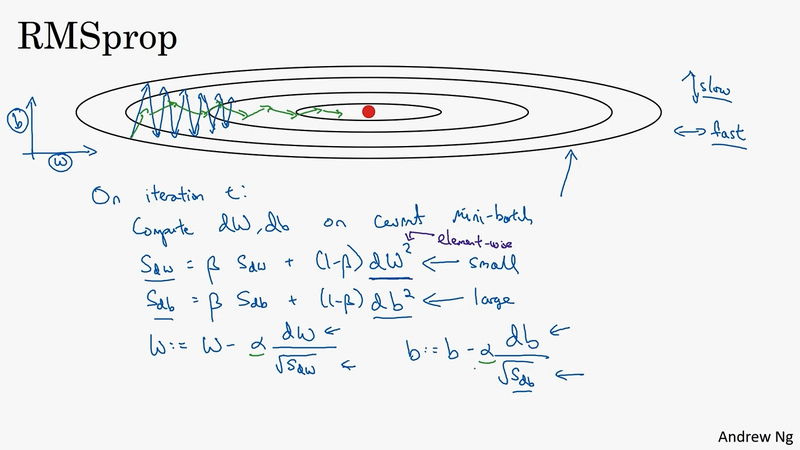 RMSprop
slow
fast
b
w
On iteration t:
Compute dW, db on current mini-batch
element-wise
S_dw = β S_dw + (1-β) dW² ← small
S_db = β S_db + (1-β) db² ← large
W := W - α dW/√S_dw ← b := b - α db/√S_db ←
Andrew Ng